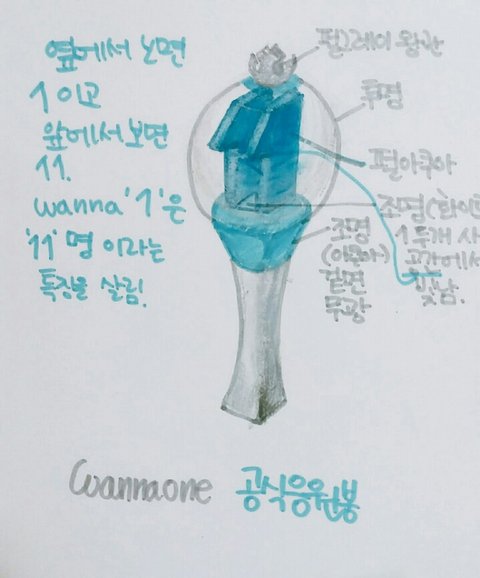 옆에서 보면
1 이고
앞에서보면
11.
wanna '1'은
'11' 명 이라는
특징을 살림.
펄그레이 왕관
투명
펄아쿠아
조명(화이
1 두개 사
공간에서
빛남.
조명
(아쿠아)
겉면
무광
Wannaone 공식응원봉